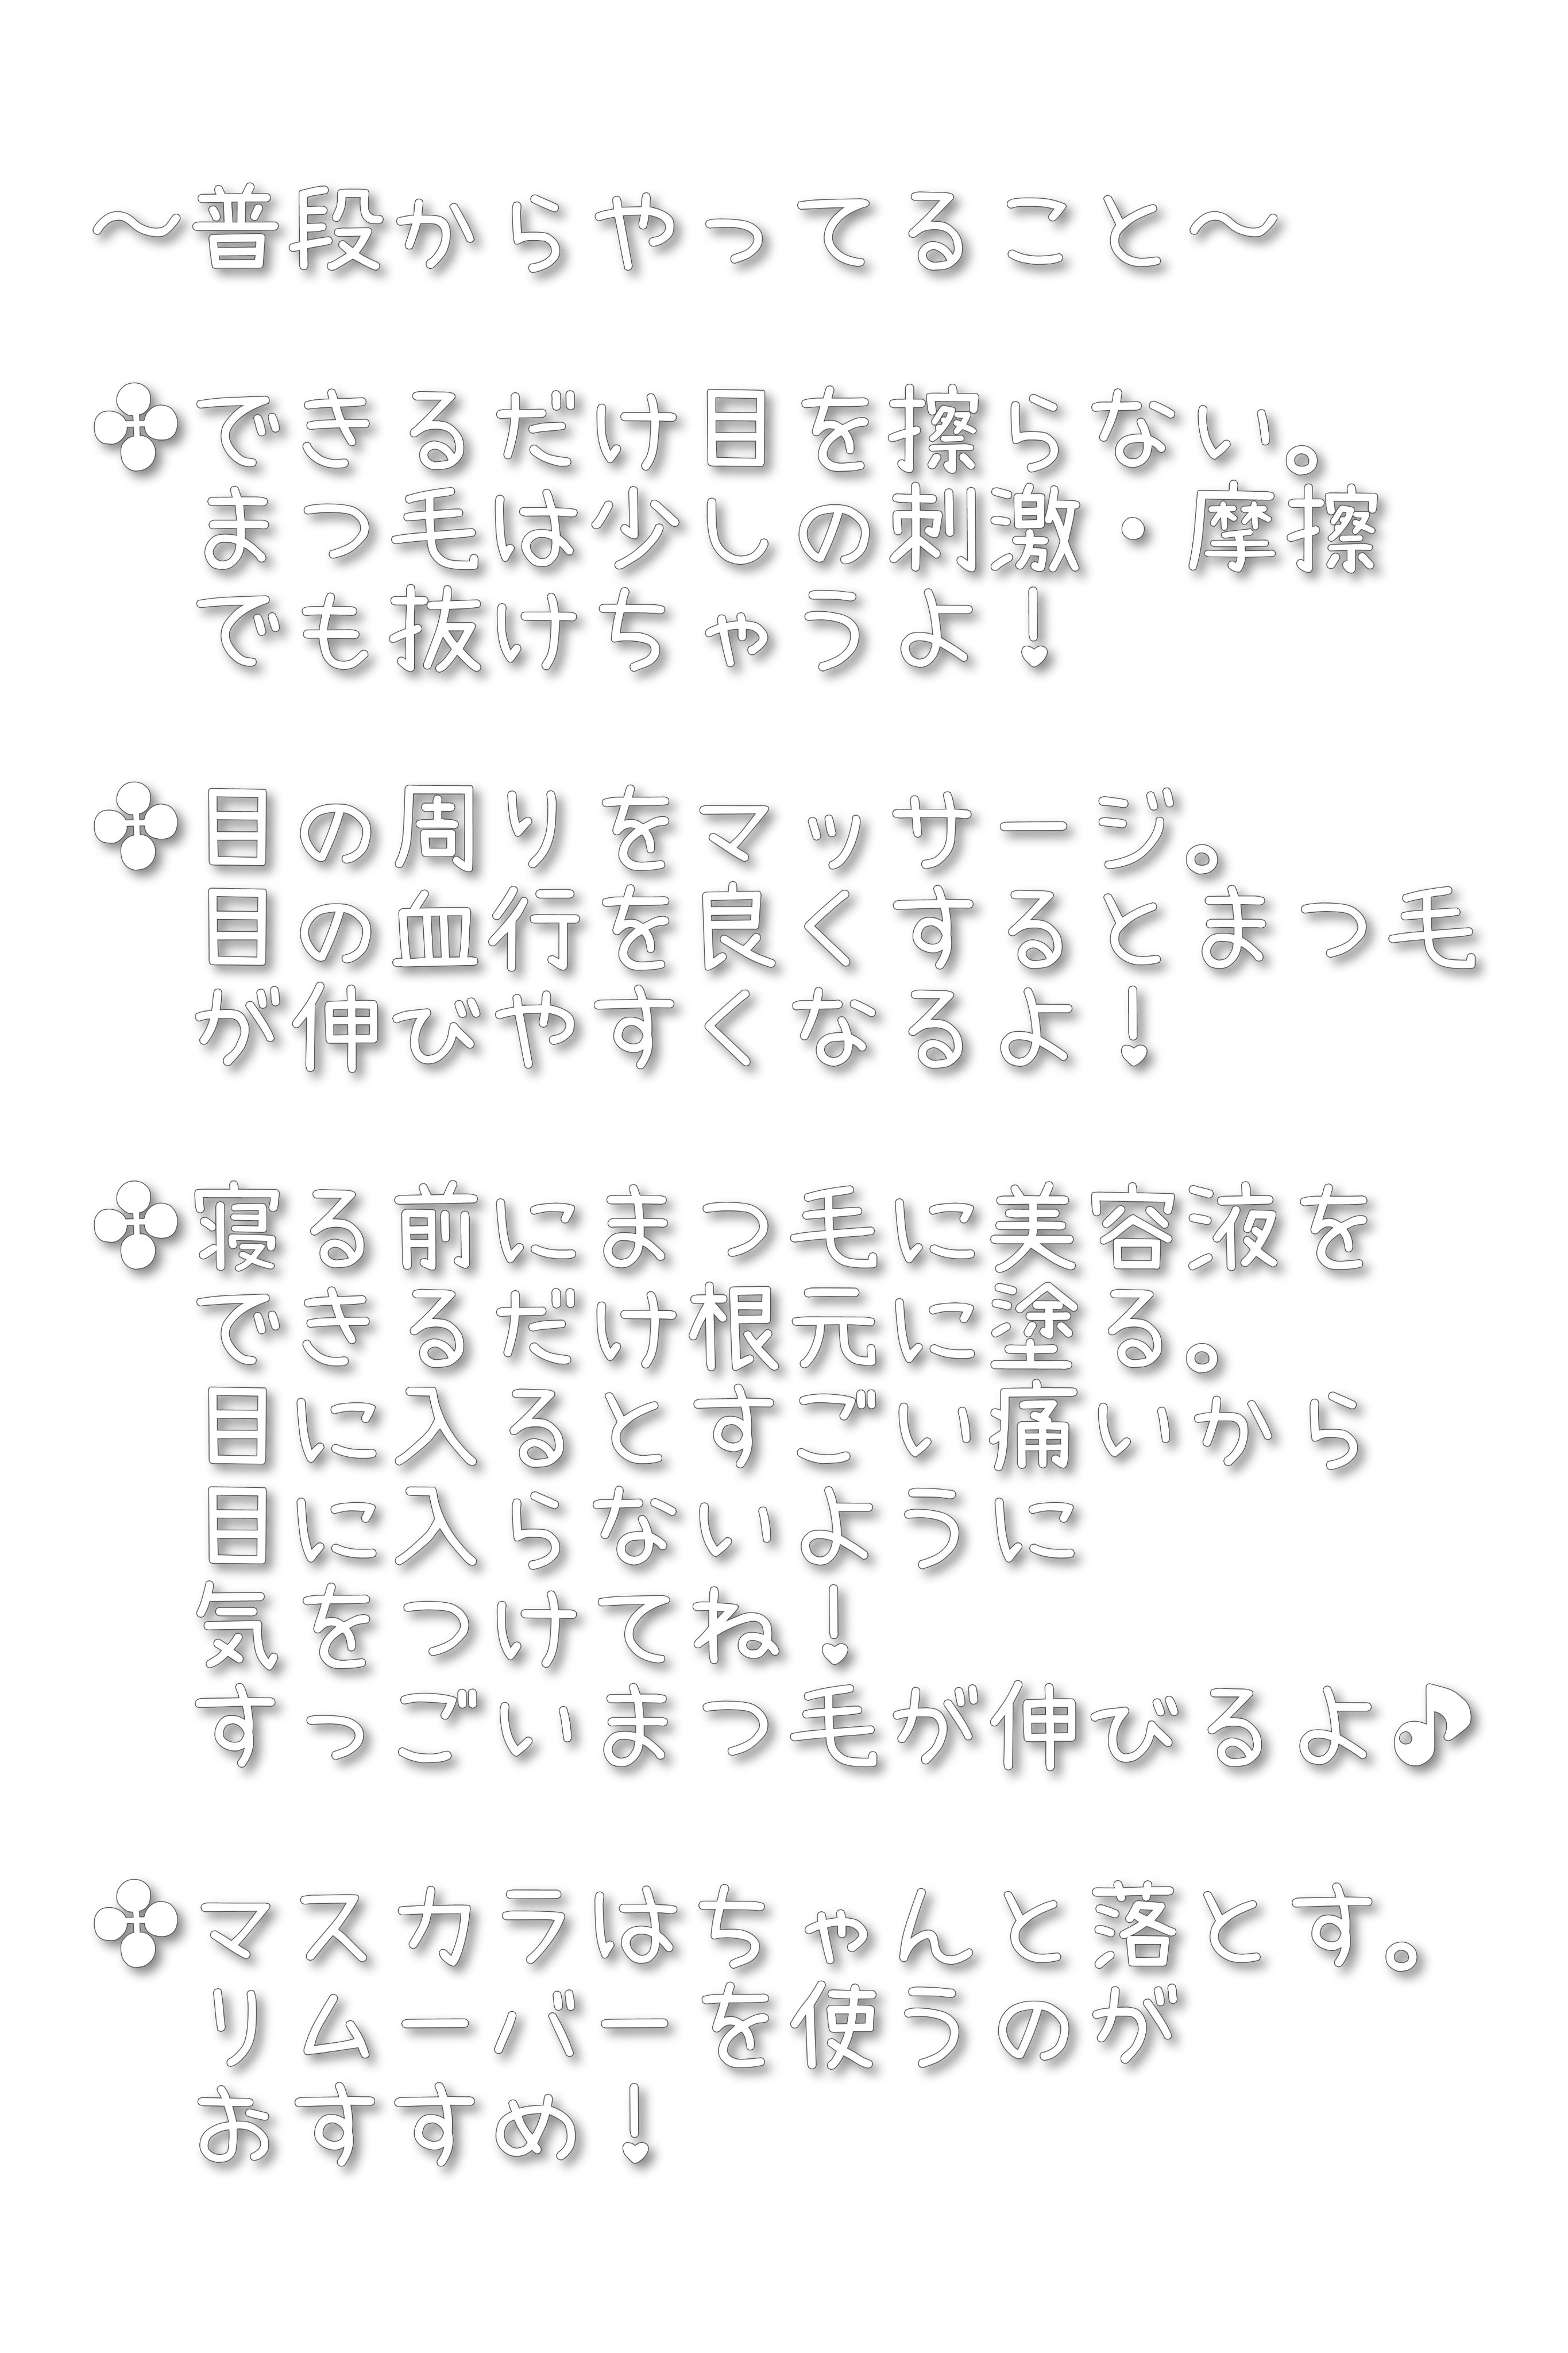 〜普段からやってること〜
✤できるだけ目を擦らない。
まつ毛は少しの刺激・摩擦
でも抜けちゃうよ！
✤目の周りをマッサージ。
目の血行を良くするとまつ毛
が伸びやすくなるよ！
✤寝る前にまつ毛に美容液を
できるだけ根元に塗る。
目に入るとすごい痛いから
目に入らないように
気をつけてね！
すっごいまつ毛が伸びるよ♪
✤マスカラはちゃんと落とす。
リムーバーを使うのが
おすすめ！